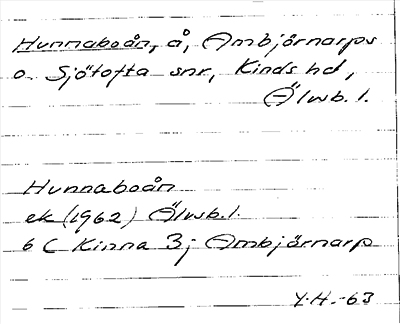 Hunnaboån, å, Ambjörnarps
o. Sjötofta snr, Kinds hd,
Älvsb. l.
Hunnaboån
ek (1962) Älvsb. l.
6 C Kinna 3j Ambjörnarp
Y.H. -63